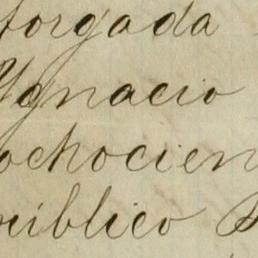 forgada
Ygnacio
ochocien
público